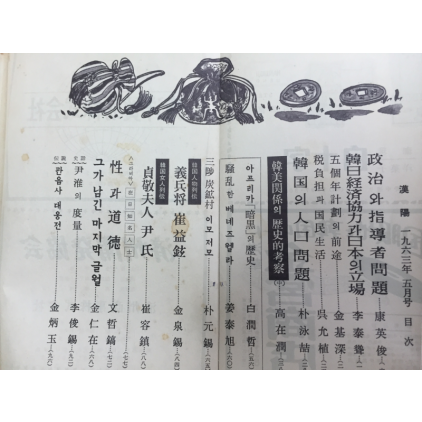 漢陽 一九六三年 五月号 目次
政治와 指導者問題 康英俊
韓日経済協力과 日本의 立場 李泰雙
五個年計劃의 前途 金基深
税負担과 国民生活 呉允植
韓国의 人口問題 朴泳喆
韓美関係의 歴史的考察 高在潤
아프리카 暗黒의 歴史 白潤哲
騒乱한 베네즈엘라 姜泰旭
三陟 炭鉱村 이모저모 朴元錫
韓国人物列伝
義兵将 崔益鉉 金泉錫
韓国女人列伝
貞敬夫人 尹氏 崔容鎮
性과 道徳 文哲鎬
그가 남긴 마지막 글월 金仁在
尹淮의 度量 李俊錫
관음사 대웅전 金炳玉